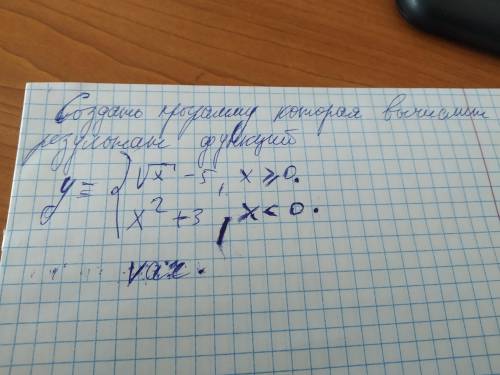 Создать программу которая вычислит
результат функций
y = { √x - 5, x ≥ 0.
x² + 3, x < 0.